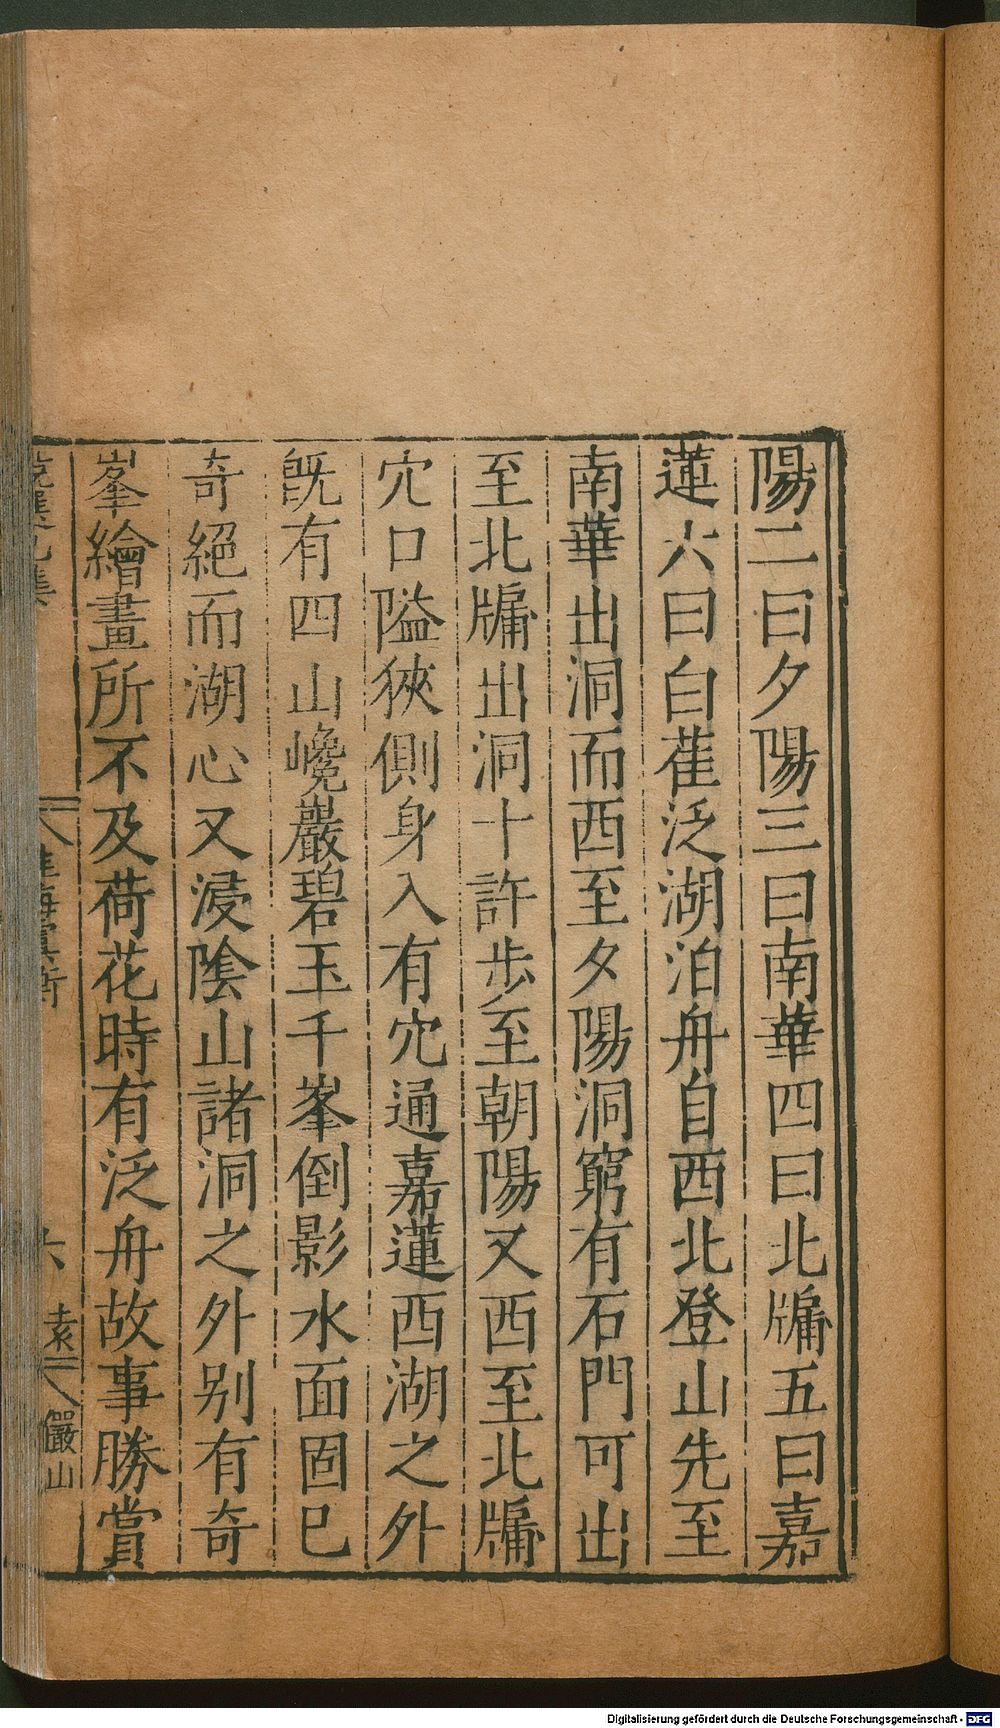 陽二曰夕陽三曰南華四曰北牖五曰嘉
蓮六曰白雈泛湖泊舟自西北登山先至
南華出洞而西至夕陽洞窮有石門可出
至北牖出洞十許步至朝陽又西至北牖
穴口隘狹側身入有穴通嘉蓮西湖之外
旣有四山巉巖碧玉千峯倒影水面固已
奇絕而湖心又浸陰山諸洞之外別有奇
峯繪畫所不及荷花時有泛舟故事勝賞
桂海虞衡
六
袁
儼山
Digitalisierung gefördert durch die Deutsche Forschungsgemeinschaft - DFG